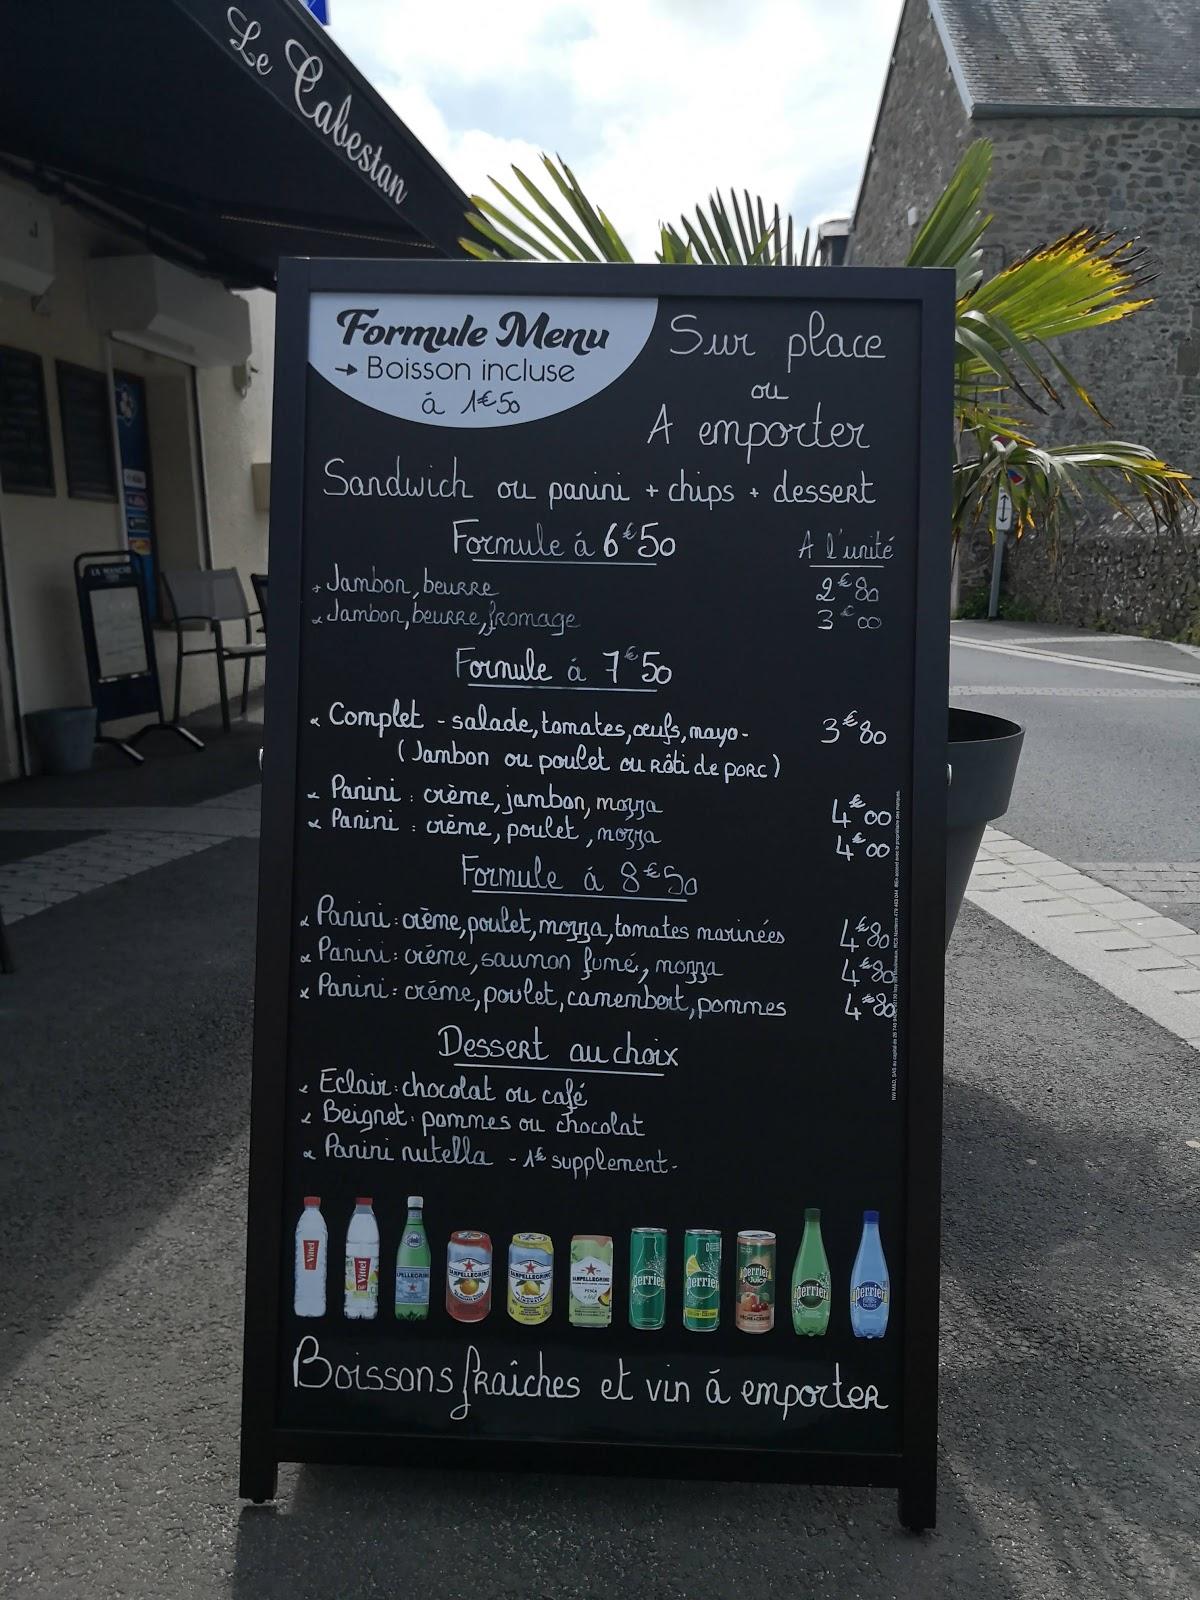 Le Cabestan
Formule Menu
→ Boisson incluse
á 1€50
Sur place
ou
A emporter
Sandwich ou panini + chips + dessert
Formule á 6€50
A l'unité
Jambon, beurre 2€80
Jambon, beurre, fromage 3€00
Formule á 7€50
Complet - salade, tomates, œufs, mayo- 3€80
(Jambon ou poulet ou Rôti de porc)
Panini : crème, jambon, mozza 4€00
Panini : crème, poulet, mozza 4€00
Formule á 8€50
Panini : crème, poulet, mozza, tomates marinées 4€80
Panini : crème, saumon fumé, mozza 4€80
Panini : crème, poulet, camembert, pommes 4€80
Dessert au choix
Eclair : chocolat ou café
Beignet : pommes ou chocolat
Panini nutella - 1€ supplement-
Vittel
Vittel
SANPELLEGRINO
SANPELLEGRINO
SANPELLEGRINO
SANPELLEGRINO
Perrier
Perrier
Perrier
Juice
Perrier
Perrier
Boissons fraîches et vin á emporter
LA MANCHE